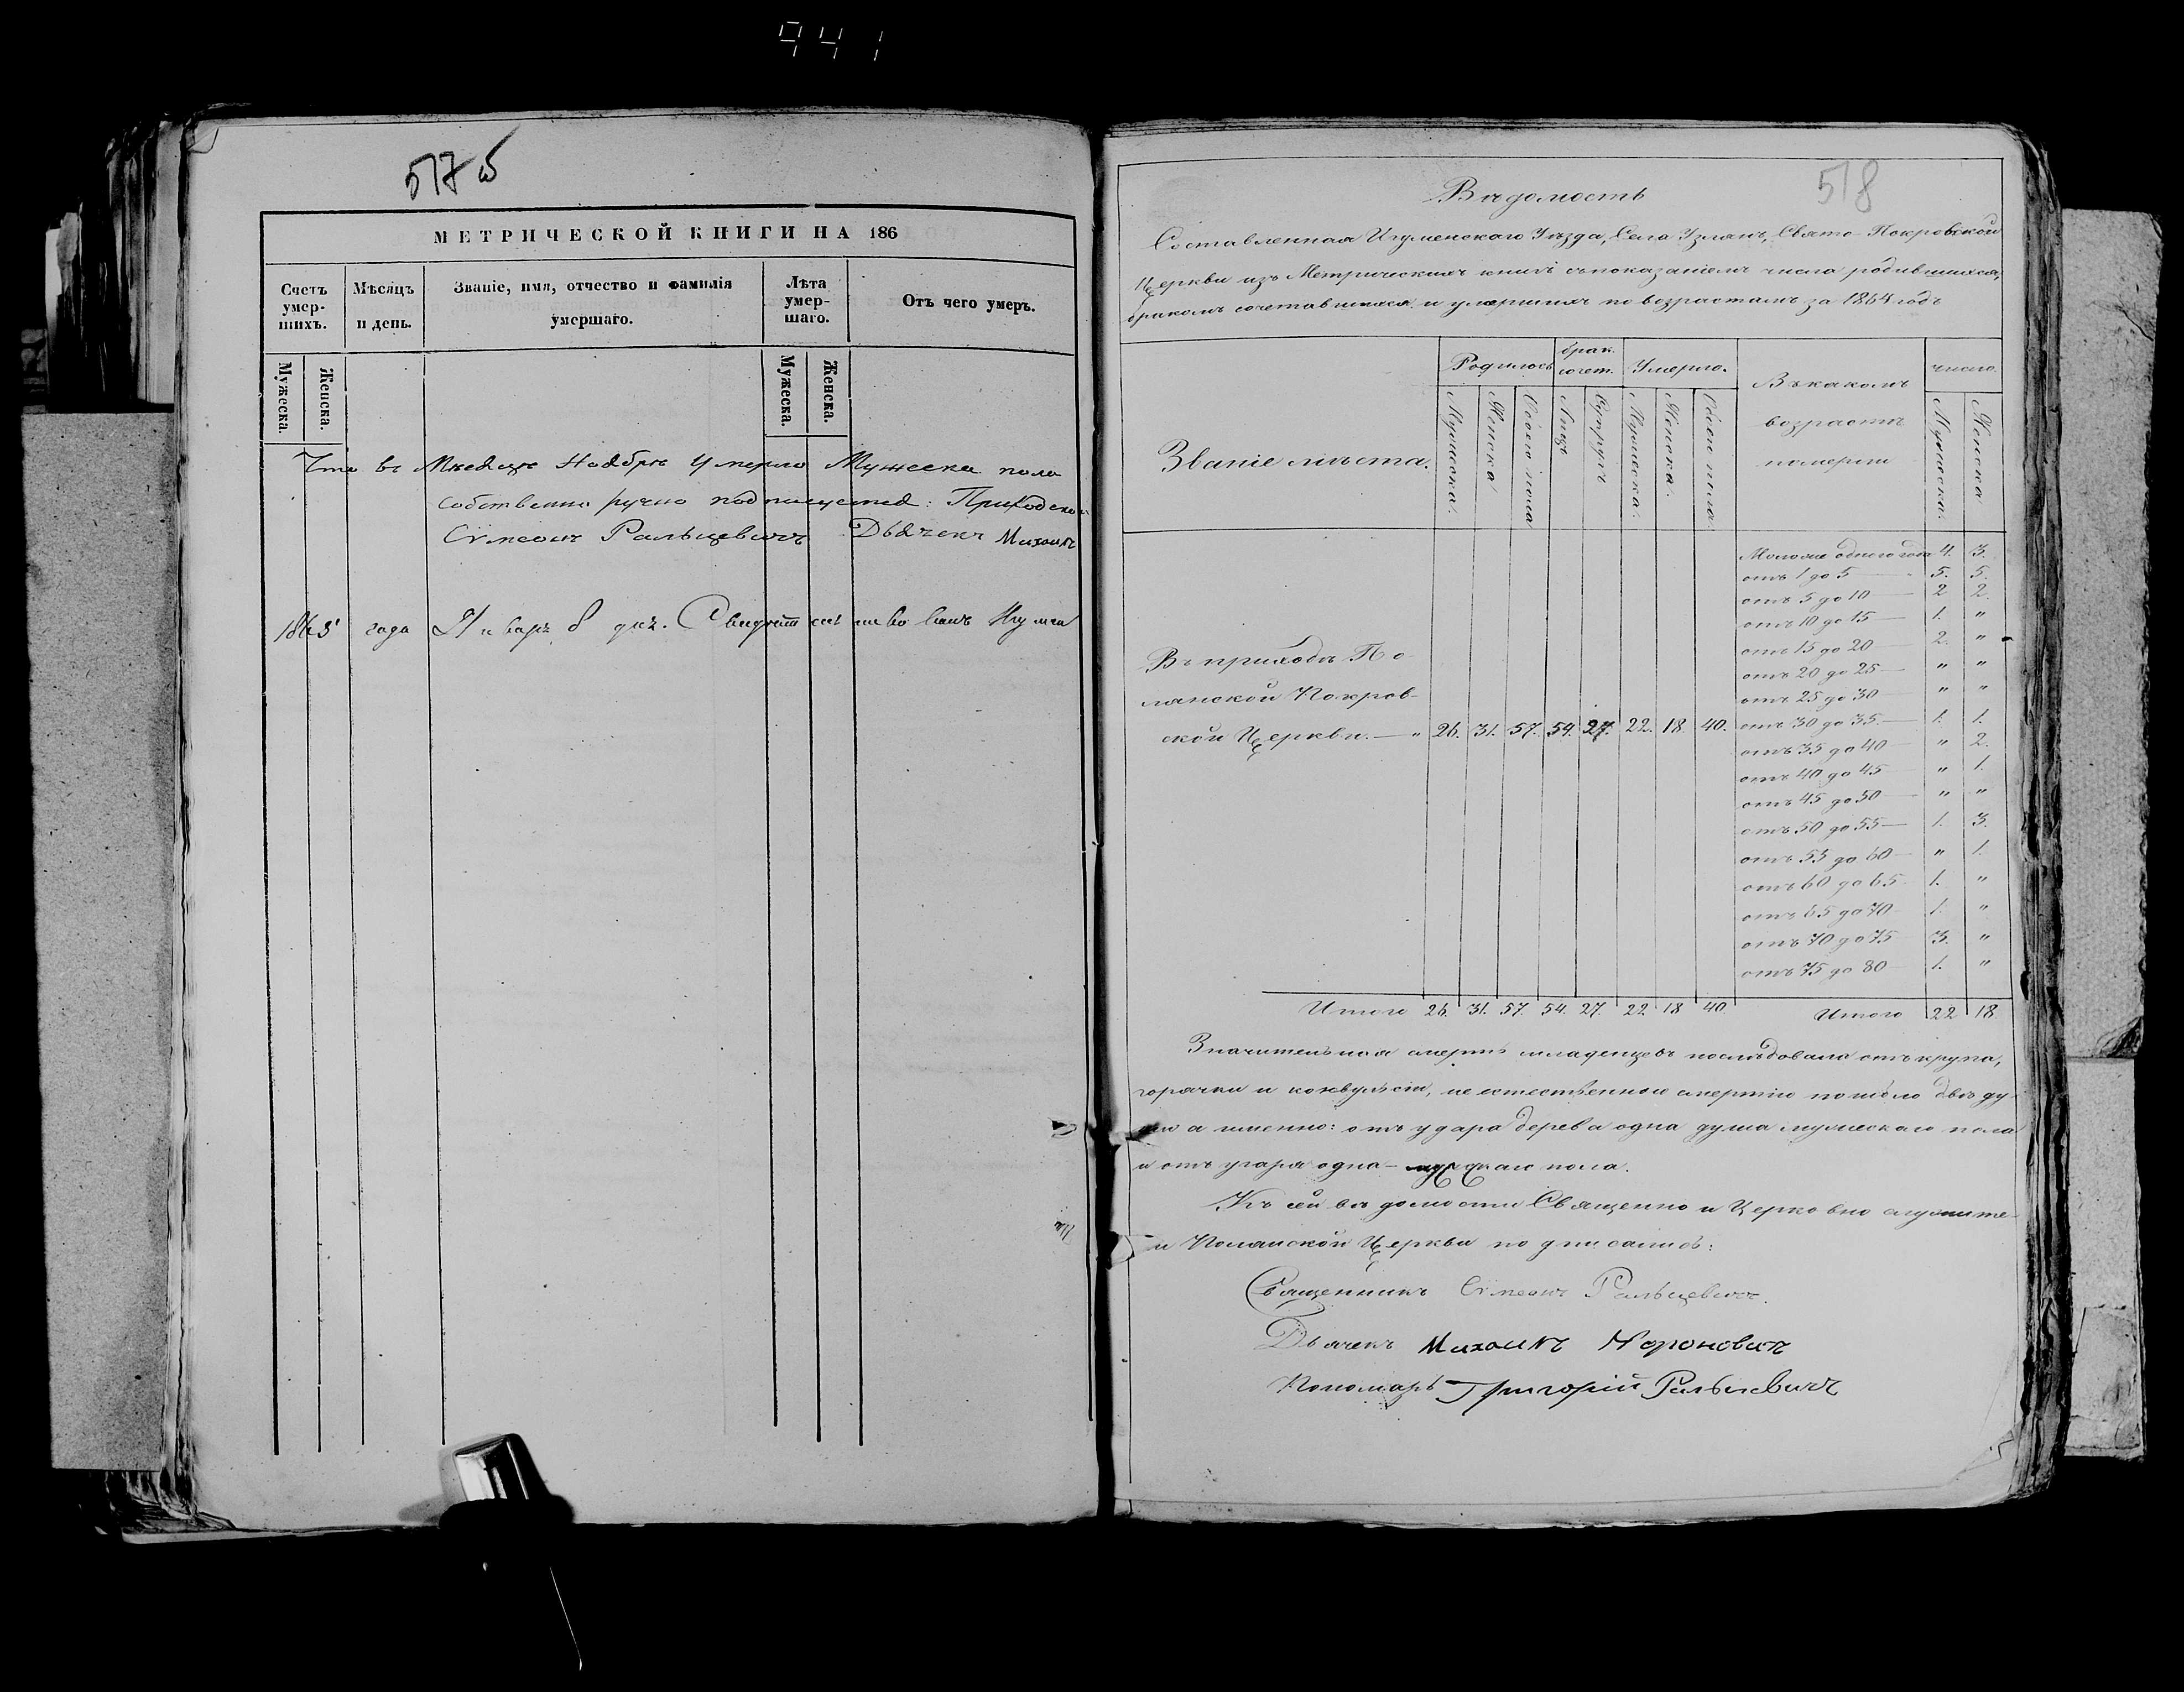 941
517 об
МЕТРИЧЕСКОЙ КНИГИ НА 186
Счетъ умер-шихъ.
Мѣсяцъ и день.
Званіе, имя, отчество и фамилія умершаго.
Лѣта умер-шаго.
Отъ чего умеръ.
Мужеска.
Женска.
Мужеска.
Женска.
Что въ Мѣсяцѣ Ноябрѣ Умерло Мужеска пола
собственно ручно подписуемся: Приходско
Сѵмеонъ Ральцевичъ Дьячекъ Михаилъ
1865 года Январь 8 дня. Свидѣтельствовалъ Игумен
518
Вѣдомость
Составленная Игуменскаго Уѣзда, Села Узлянъ, Свято-Покровской
Церкви изъ Метрическихъ книгъ съ показаніемъ числа родившихся,
бракомъ сочетавшихся и умершихъ по возрастамъ за 1864 годъ
Званіе мѣста.
Родилось
брак. сочет.
Умерло.
Въ какомъ
возрастѣ
померли
число.
Мужеска.
Женска
Обоего пола
Лицъ
Супругъ
Мужеска.
Женска.
Обоего пола
Мужеска.
Женска
Моложе одного года 4. 3.
отъ 1 до 5 — 5. 5.
отъ 5 до 10 — 2 2.
отъ 10 до 15 — 1. "
отъ 15 до 20 2. "
отъ 20 до 25 — " "
отъ 25 до 30 " "
Въ приходѣ По-
лянской Покров-
ской Церкви. — " 26. 31. 57. 54. 27. 22. 18. 40. отъ 30 до 35. — 1. 1.
отъ 35 до 40 — " 2.
отъ 40 до 45 " 1.
отъ 45 до 50 — " "
отъ 50 до 55 — 1. 3.
отъ 55 до 60 — " 1.
отъ 60 до 65 1. "
отъ 65 до 70 1. "
отъ 70 до 75 3. "
отъ 75 до 80 1. "
Итого 26. 31. 57. 54. 27. 22 18 40. Итого 22 18
Значительная смерть младенцевъ послѣдовала отъ крупа,
горячки и конвульсіи, не естественною смертію погибло двѣ ду-
ши а именно: отъ удара дерева одна душа мужескаго пола
и отъ угара одна- пола.
Къ сей вѣдомости Священно и Церковно служите-
ли Полянской Церкви подписались:
Священникъ Сѵмеонъ Ральцевичъ.
Дьячекъ Михаилъ Нороновичъ
Пономарь Григорій Ральцевичъ